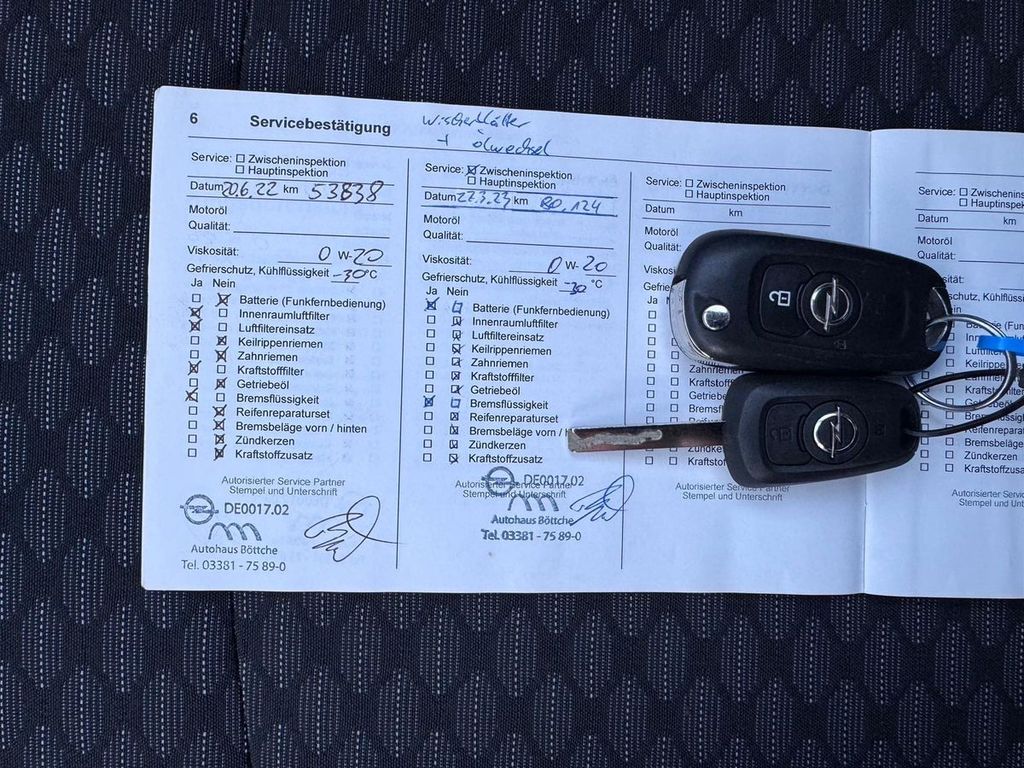 6 Servicebestätigung
Wischerblätter
+ ölwechsel
Service: Zwischeninspektion
Hauptinspektion
Datum 20.6.22 km 53838
Motoröl
Qualität:
Viskosität: 0 W-20
Gefrierschutz, Kühlflüssigkeit -30°C
Ja Nein
Batterie (Funkfernbedienung)
Innenraumluftfilter
Luftfiltereinsatz
Keilrippenriemen
Zahnriemen
Kraftstofffilter
Getriebeöl
Bremsflüssigkeit
Reifenreparaturset
Bremsbeläge vorn / hinten
Zündkerzen
Kraftstoffzusatz
Autorisierter Service Partner
Stempel und Unterschrift
DE0017.02
Autohaus Böttche
Tel. 03381 - 75 89-0
Service: Zwischeninspektion
Hauptinspektion
Datum 22.3.23 km 80.124
Motoröl
Qualität:
Viskosität: 0 W-20
Gefrierschutz, Kühlflüssigkeit -30 °C
Ja Nein
Batterie (Funkfernbedienung)
Innenraumluftfilter
Luftfiltereinsatz
Keilrippenriemen
Zahnriemen
Kraftstofffilter
Getriebeöl
Bremsflüssigkeit
Reifenreparaturset
Bremsbeläge vorn / h
Zündkerzen
Kraftstoffzusatz
Autorisierter Service Partner
Stempel und Unterschrift
DE0017.02
Autohaus Böttche
Tel. 03381 - 75 89-0
Service: Zwischeninspektion
Hauptinspektion
Datum km
Motoröl
Qualität:
Viskosi
Gefrie
Ja
Zahnriemen
Kraftstofff
Getriebe
Bremsfl
Zündke
Kraftstof
Autorisierter Service Partner
Stempel und Unterschrift
Service: Zwischenins
Hauptinspek
Datum km
Motoröl
Qualität:
Kühlflüssi
Luftfilte
Keilripp
Zahnriemen
Kraftstofffilte
Getriebeöl
Bremsflüssigk
Reifenreparat
Bremsbeläge
Zündkerzen
Kraftstoffzusa
Autorisierter Service
Stempel und Unt